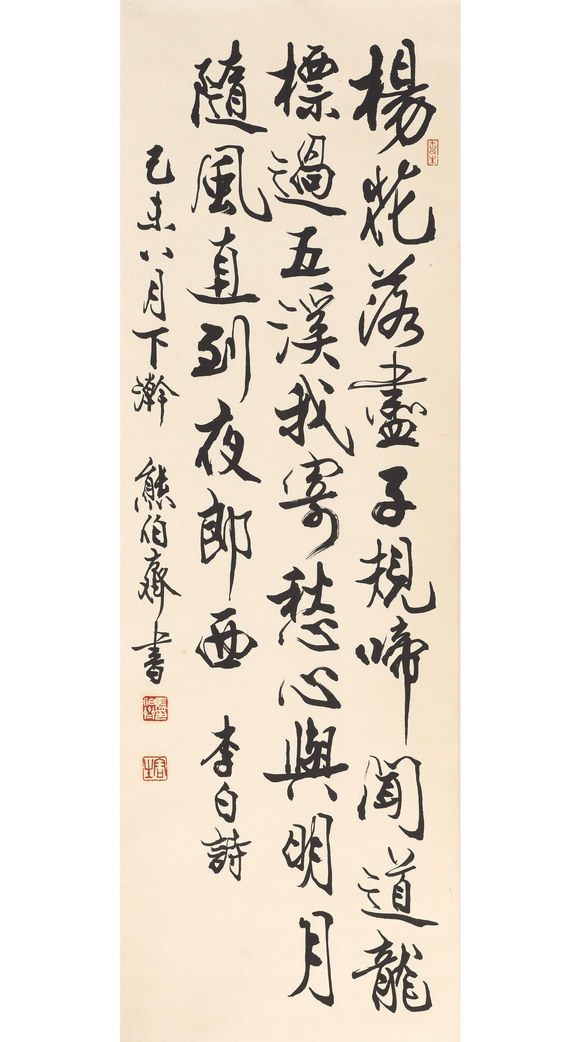 楊花落盡子規啼聞道龍
標過五溪我寄愁心與明月
隨風直到夜郎西 李白詩
己未八月下澣 熊伯齊書